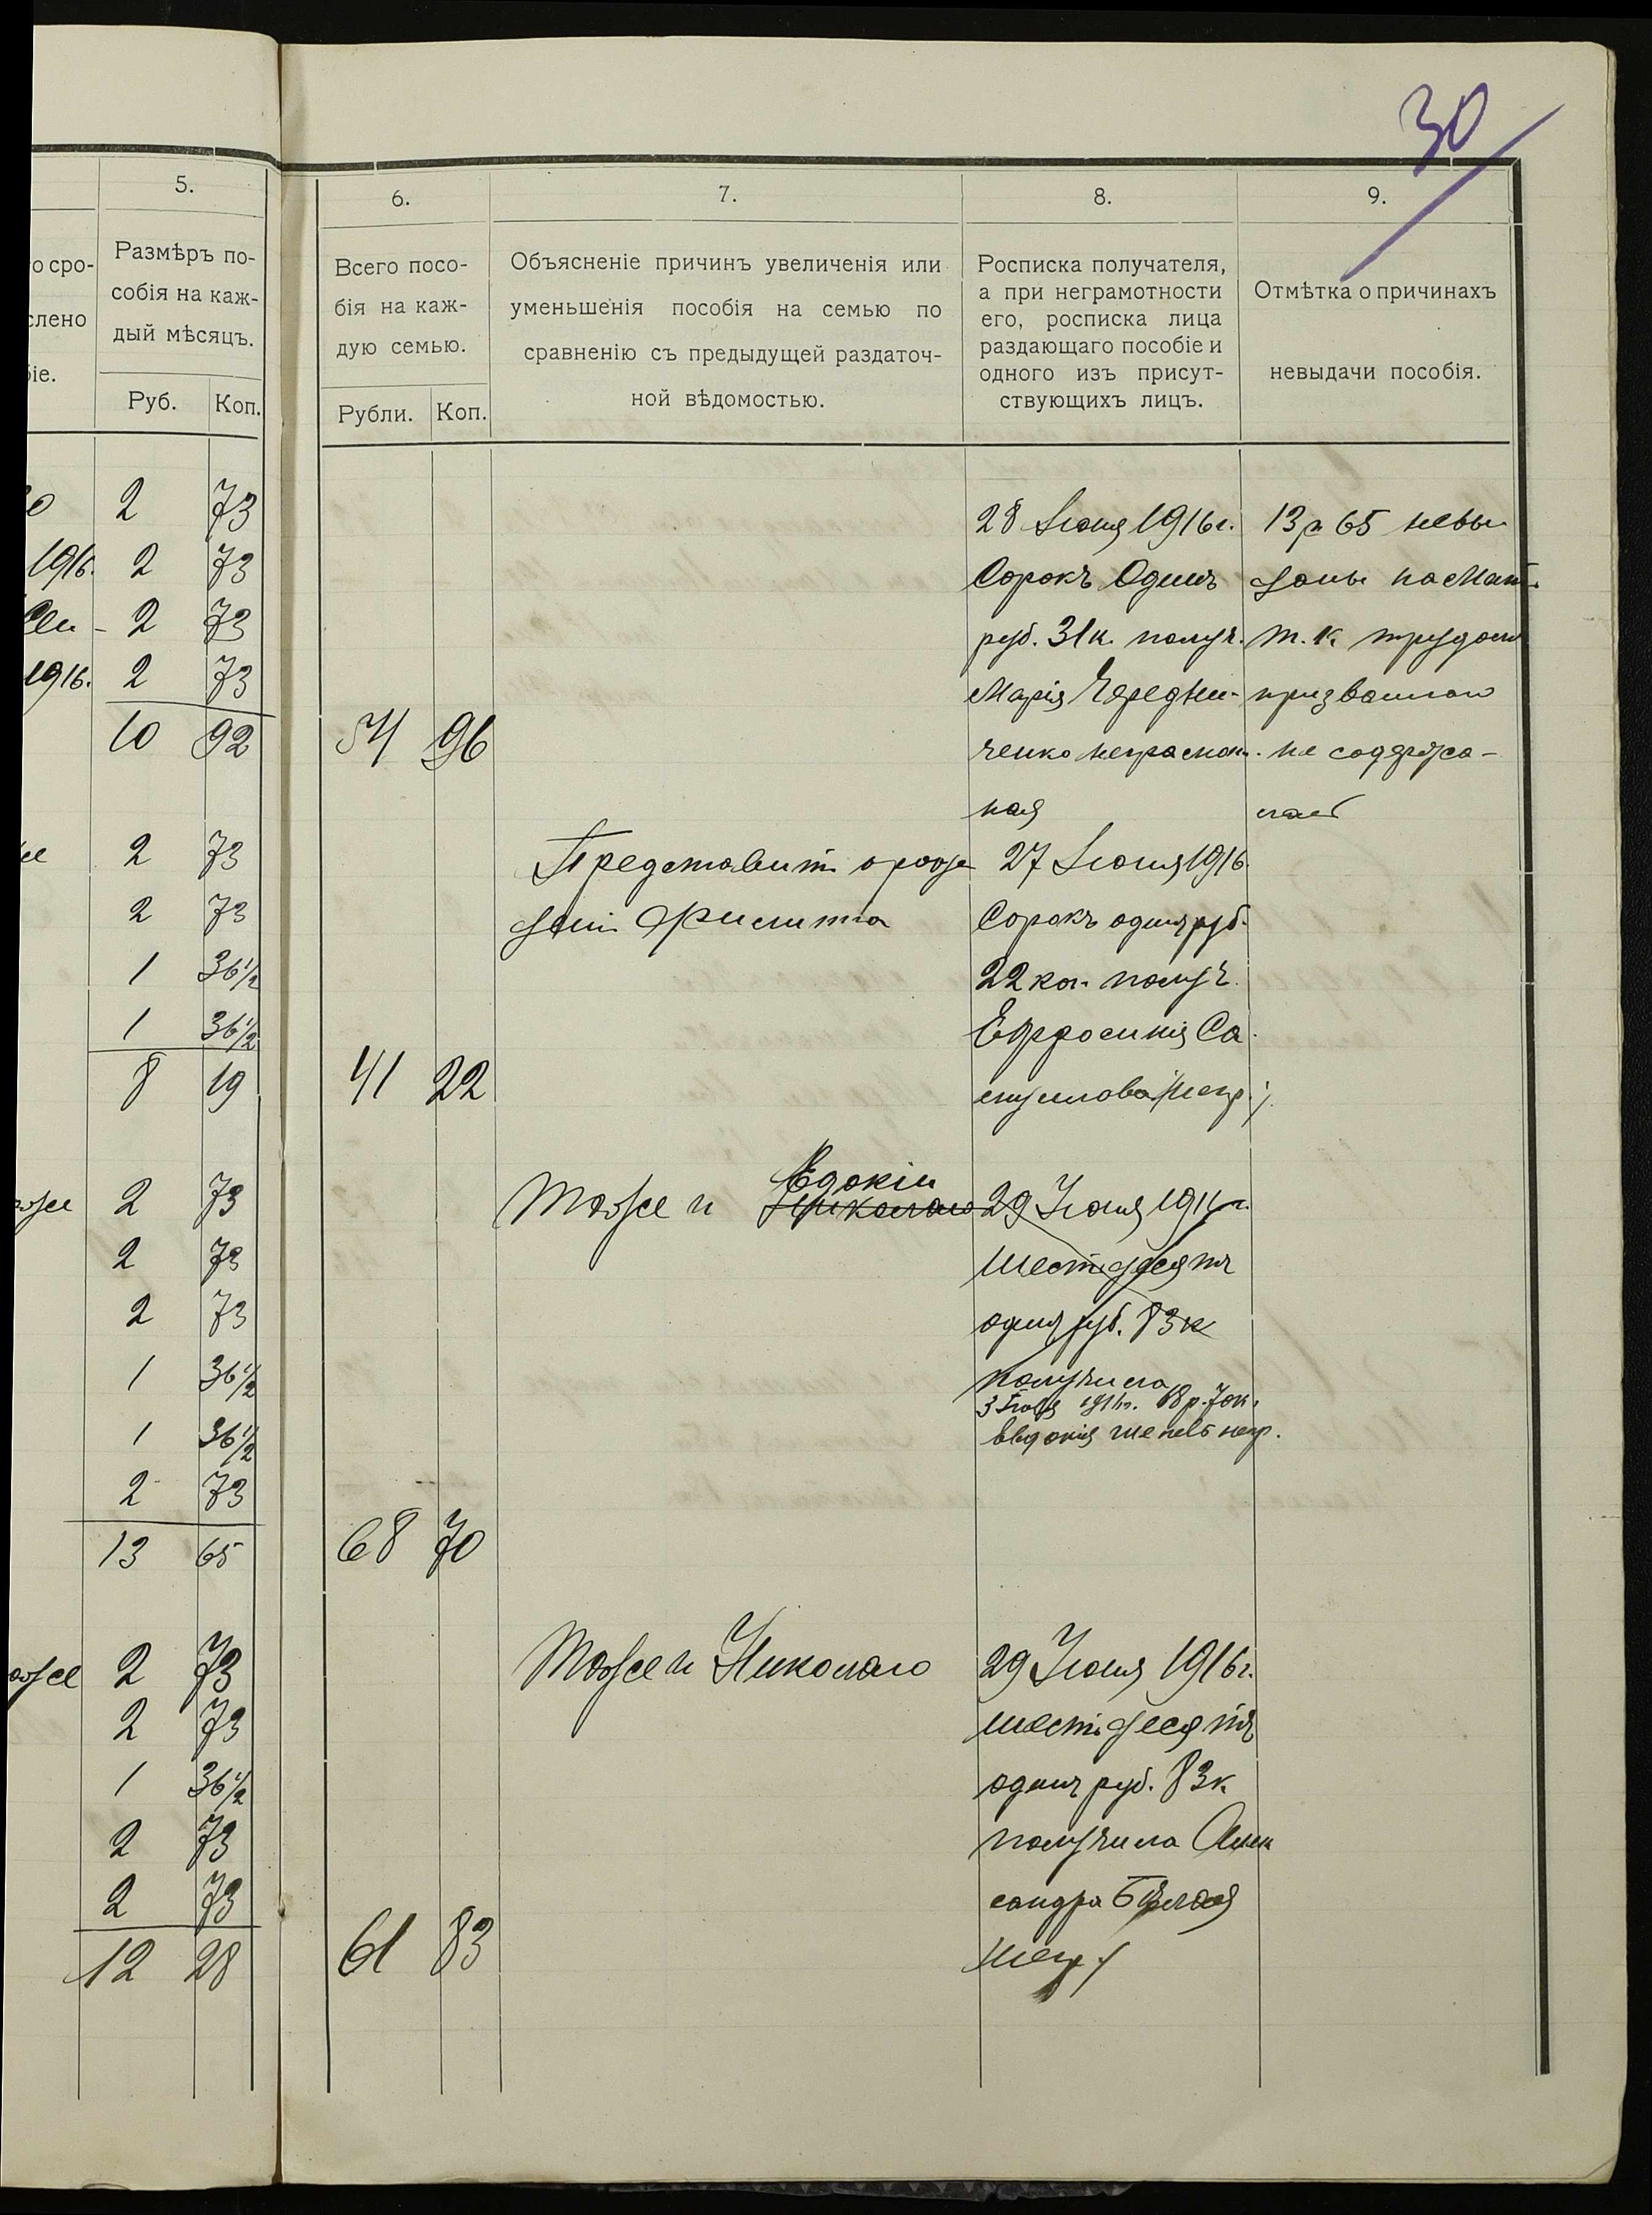 30
5.
6.
7.
8.
9.
о сро-
слено
біе.
Размѣръ по-
собія на каж-
дый мѣсяцъ.
Руб. Коп.
Всего посо-
бія на каж-
дую семью.
Рубли. Коп.
Объясненіе причинъ увеличенія или
уменьшенія пособія на семью по
сравненію съ предыдущей раздаточ-
ной вѣдомостью.
Росписка получателя,
а при неграмотности
его, росписка лица
раздающаго пособіе и
одного изъ присут-
ствующихъ лицъ.
Отмѣтка о причинахъ
невыдачи пособія.
2 73
1916. 2 73
2 73
1916. 2 73
10 92
54 96
28 Іюня 1916г.
Сорокъ Одинъ
руб. 31к. получ.
Марія Чередни-
ченко неграмот-
ная
13р 65 невы
даны на Мат.
т. к. трудом
призванаго
не содержа-
лась
2 73
2 73
1 36 1/2
1 36 1/2
8 19
41 22
Представит. о рож
деніи Филиппа
27 Іюня 1916
Сорокъ один руб.
22 коп. получ.
Ефросинія Са
мусилова /негр./
2 73
2 73
2 73
1 36 1/2
1 36 1/2
2 73
13 65
68 70
Тоже и Николаю
Едокіи
29 Іюня 1916г.
шестьдесятъ
один руб. 83к
получила
3 Іюля 1916г. 68р. 70к.
негр.
тоже 2 73
2 73
1 36 1/2
2 73
2 73
12 28
61 83
Тоже и Николаю
29 Іюня 1916г.
шестьдесятъ
одинъ руб. 83к
получила Алек
сандра Бѣлая
/негр/